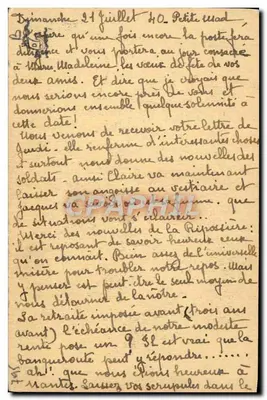 Dimanche 21 Juillet 40. Petite Mad
J'espère qu'une fois encore la poste fera
diligence et vous portera au jour consacré
à Marie Madeleine les vœux de fête de vos
deux amis. Et dire que je croyais que
nous serions encore près de vous et
donnerions ensemble quelque solennité à
cette date!
Nous venons de recevoir votre lettre de
Jeudi. elle renferme d'intéressantes choses
et surtout nous donne des nouvelles des
soldats. ainsi Claire va maintenant
laisser son angoisse au vestiaire et
Jacques a que
de situations vont s'éclaircir.
Merci des nouvelles de la
il est reposant de savoir heureux ceux
qu'on connait. Bien assez de l'universelle
misère pour troubler notre repos. Mais
y penser est peut être le seul moyen de
nous détourner de la nôtre.
Sa retraite imposée avant (trois ans
avant) l'échéance de notre modeste
rente pose un ? Il est vrai que la
banqueroute peut y répondre.......
ah! que nous étions heureux à
Nantes. Laissez vos scrupules dans le
CPAPHIL